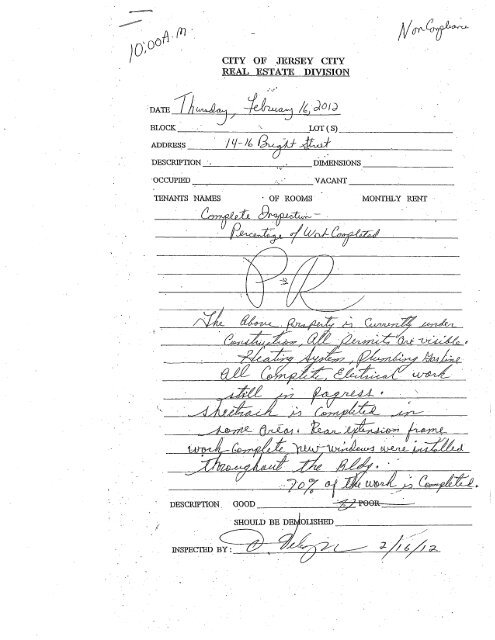 10:00 A.M
Non Compliance
CITY OF JERSEY CITY
REAL ESTATE DIVISION
DATE Thursday, February 16, 2012
BLOCK LOT (S)
ADDRESS 14-16 Bright Street
DESCRIPTION DIMENSIONS
OCCUPIED VACANT
TENANTS NAMES OF ROOMS MONTHLY RENT
Complete Inspection -
Percentage of Work Completed
P-R
The above Property is Currently under
Construction, All Permits are visible.
Heating System, Plumbing
all Complete, Electrical work
still in Pagress.
sheetrack is Completed in
some areas. Rear extension frame
work Complete, new windows were installed
throughout the Bldg.
70% of the work is Completed.
DESCRIPTION GOOD POOR
SHOULD BE DEMOLISHED
INSPECTED BY: 2/16/12